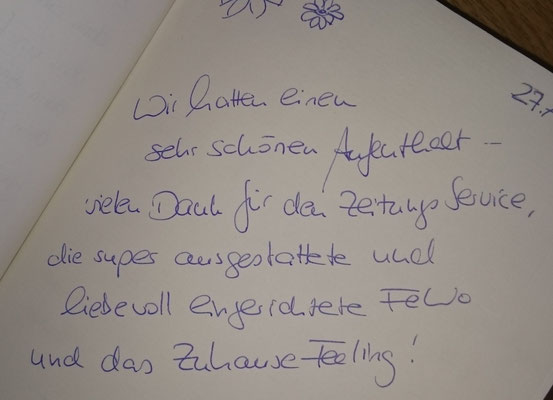 27.
Wir hatten einen
sehr schönen Aufenthalt –
vielen Dank für den Zeitungsservice,
die super ausgestattete und
liebevoll eingerichtete FeWo
und das Zuhause-Feeling!